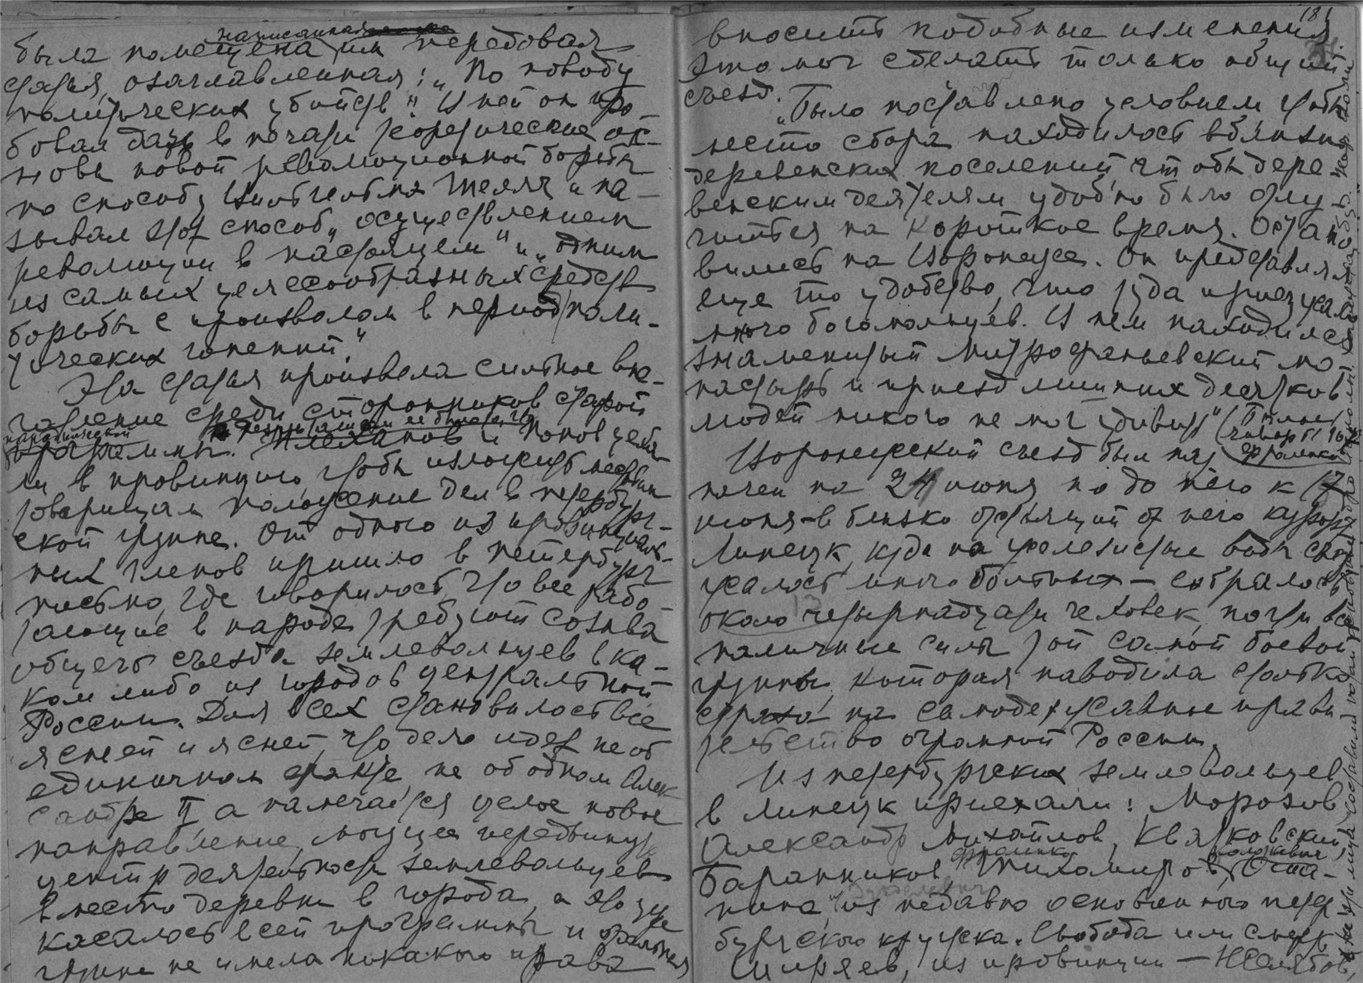 написанная
была помещена им передовая
статья, озаглавленная: „По поводу
политических убийств". В ней он про-
бовал дать в печати теоретические ос-
новы новой революционной борьбы
по способу Вильгельма Телля и на-
зывал этот способ „осуществлением
революции в настоящем" и „одним
из самых целесообразных средств
борьбы с произволом в период поли-
тических гонений."
Эта статья произвела сильное впе-
чатление среди сторонников старой
народнической
программы. Плеханов и Попов уеха-
ли в провинцию, чтобы изложить местным
товарищам положение дел в петербург-
ской группе. От одного из провинциаль-
ных членов пришло в Петербург
письмо, где говорилось, что все рабо-
тающие в народе требуют созыва
общего съезда землевольцев в ка-
ком либо из городов центральной
России. Для всех становилось все
ясней и ясней, что дело идет не об
единичном факте, не об одном Алек
сандре II а намечается целое новое
направление, могущее передвинуть
центр деятельности землевольцев
вместо деревни в города, а это уже
касалось всей программы и отдельная
группа не имела никакого права
181
вносить подобные изменения.
Это мог сделать только общий
съезд.
„Было поставлено условием чтобы
место сбора находилось вблизи
деревенских поселений чтобы дере-
венским деятелям удобно было отлу-
читься на короткое время. Остано
вились на Воронеже. Он представлял
еще то удобство, что туда приезжало
много богомольцев. В нем находился
знаменитый Митрофаньевский мо
настырь и приезд лишних десятков
людей никого не мог удивить"
Фроленко
Воронежский съезд был наз
начен на 24 июня но до него к 17
июня в близко отстоящий от него курорт
Липецк, куда на железистые воды съез
жалось много больных — собралось
13
около четырнадцати человек, почти все
наличные силы той самой боевой
группы, которая наводила столько
страха на самодержавное прави
тельство огромной России.
Из петербургских землевольцев
в Липецк приехали: Морозов
Александр Михайлов, Квятковский,
Фроленко
Баранников, Тихомиров, Оша-
нина из недавно основанного петер
бургского кружка. Свобода или смерть
Ширяев, из провинции — Желябов,